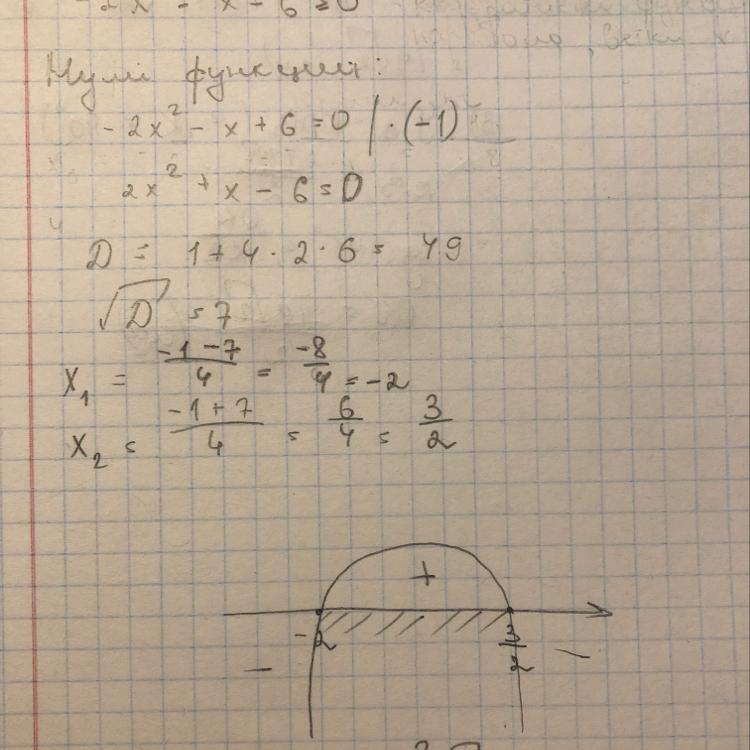 Нулі функції:
-2x² - x + 6 = 0 | · (-1)
2x² + x - 6 = 0
D = 1 + 4 · 2 · 6 = 49
√D = 7
x₁ = (-1 - 7)/4 = -8/4 = -2
x₂ = (-1 + 7)/4 = 6/4 = 3/2
+
-2 3/2
- -